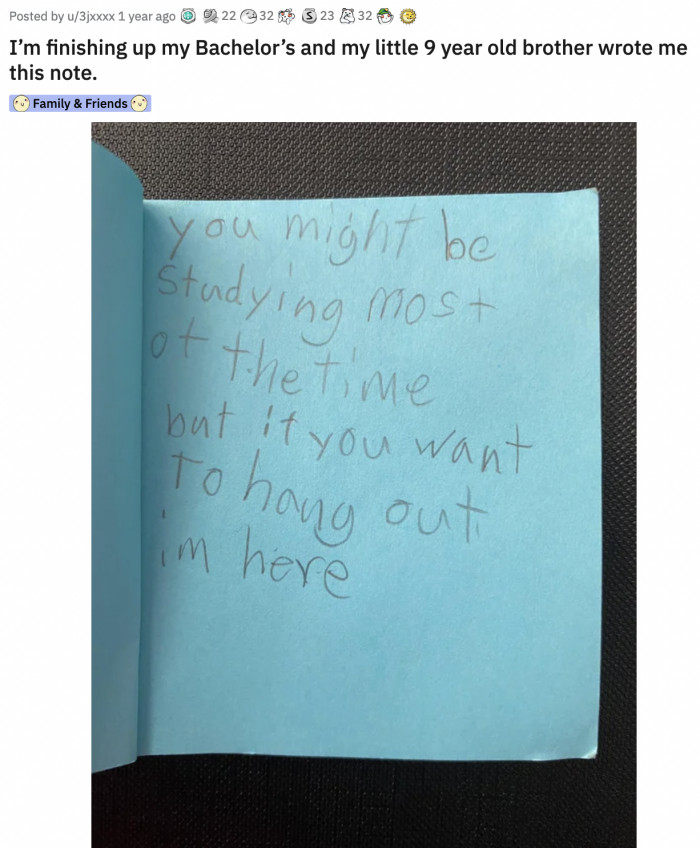 Posted by u/3jxxxx 1 year ago 22 32 S 23 32
I'm finishing up my Bachelor's and my little 9 year old brother wrote me
this note.
Family & Friends
you might be
studying most
of the time
but if you want
to hang out
im here